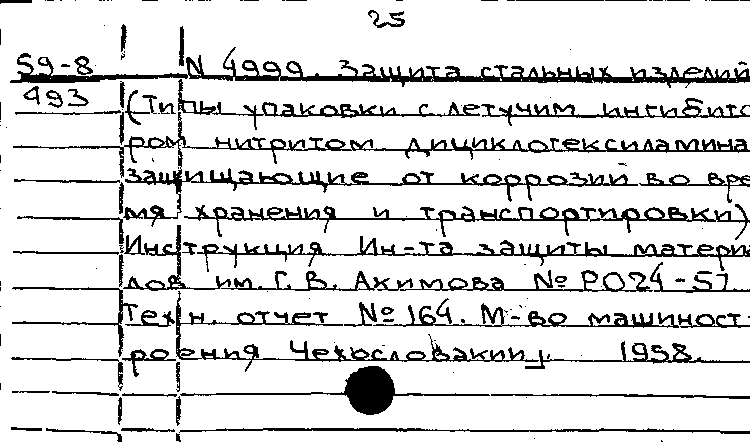 25
59-8 N 4999. Защита стальных изделий
493 (Типы упаковки с летучим ингибито
ром нитритом дициклогексиламина
защищающие от коррозии во вре
мя хранения и транспортировки)
Инструкция Ин-та защиты материа
лов им. Г. В. Акимова № РО24-57
Техн. отчет № 164. М-во машиност-
роения Чехословакии. 1958.